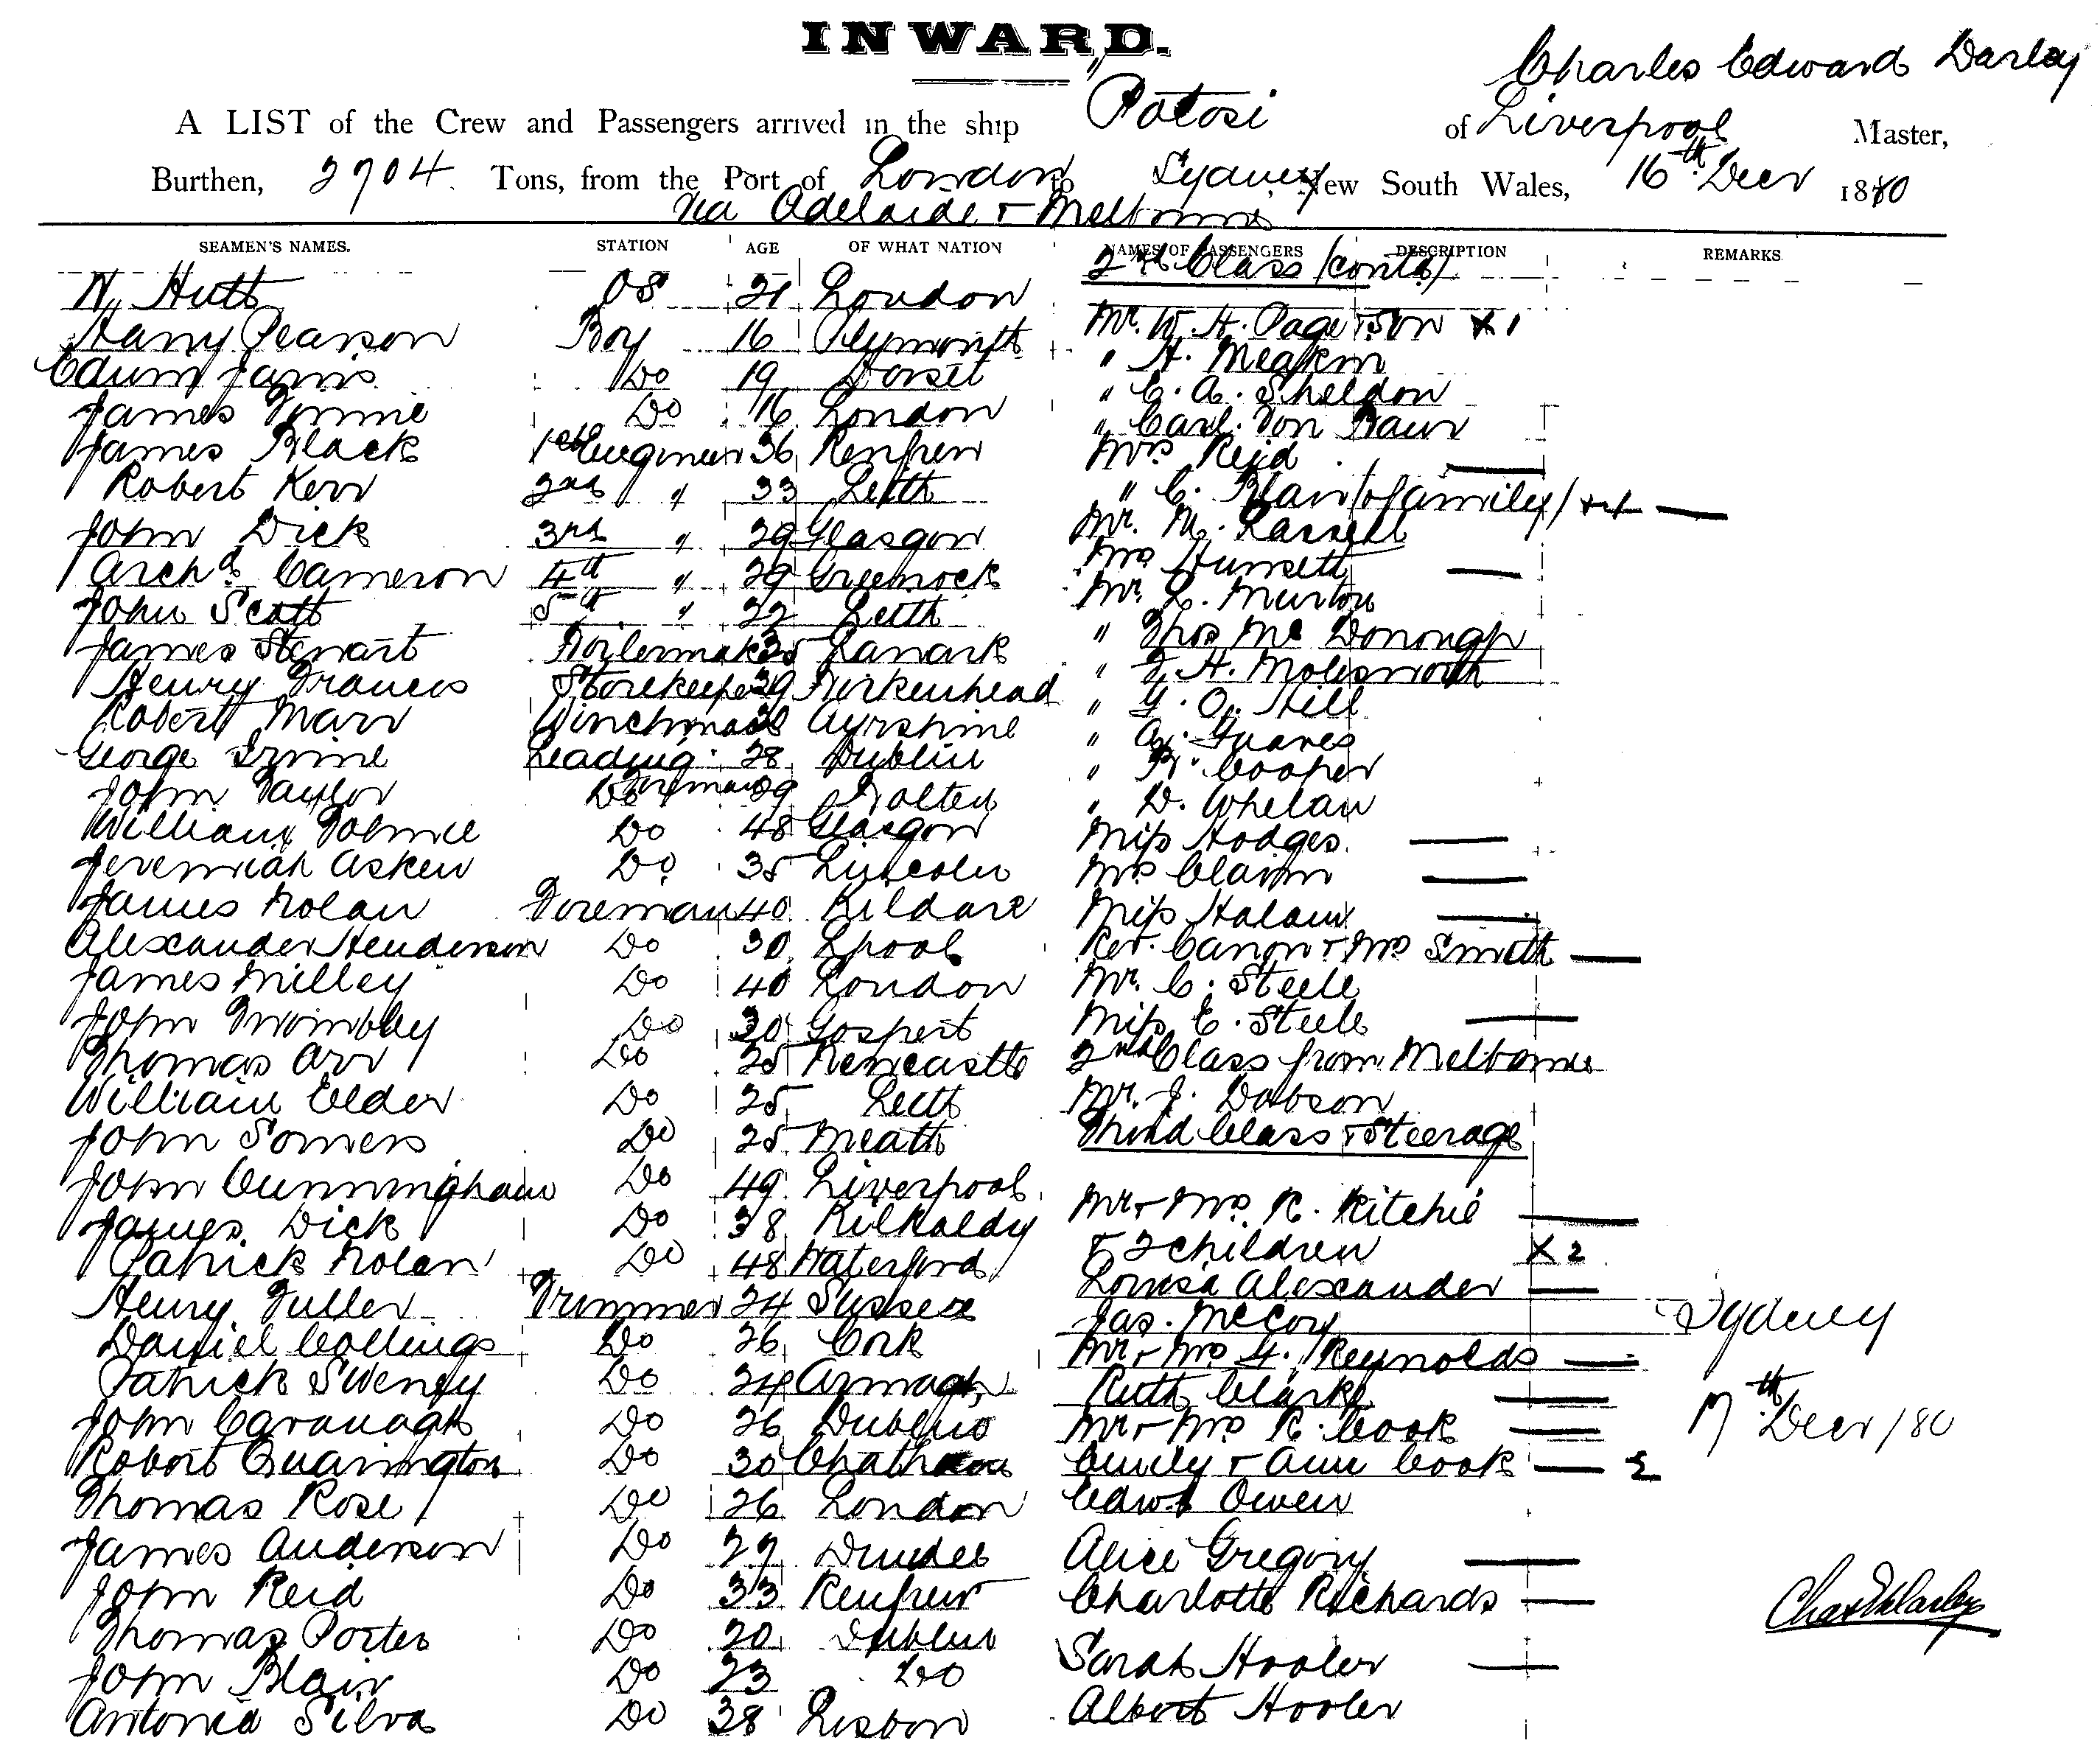 INWARD.
Charles Edward Darley
A LIST of the Crew and Passengers arrived in the ship "Potosi of Liverpool Master,
Burthen, 2704 Tons, from the Port of London to Sydney, New South Wales, 16th Decr 1880
via Adelaide & Melbourne
SEAMEN'S NAMES. STATION AGE OF WHAT NATION NAMES OF PASSENGERS DESCRIPTION REMARKS.
2nd Class (contd)
N. Hutt OS 21 London
Harry Pearson Boy 16 Plymouth Mr. W. H. Page & Son X 1
Edwin Jarvis Do 19 Dorset " H. Meakin
James Do 16 London " C. A. Sheldon
James Black 1st Engineer 36 Renfrew " Carl Von
Robert Kerr 2nd " 33 Leith Mrs Reid
John Dick 3rd " 29 Glasgow " C. Blair (& family) X 4
Archd. Cameron 4th " 29 Greenock Mr. M. Lassell
John Scott 5th " 22 Leith Mrs Hunsett
James Stewart Boilermaker 35 Lanark Mr. L. Murton
Henry Francis Storekeeper 29 Birkenhead " Thos Mc Donough
Robert Marr Winchman Ayrshire " H. Molesworth
George Irvine Leading Fireman 28 Dublin " G. O. Hill
John Taylor Do 39 Bolton " A. Graves
William Tolmie Do 48 Glasgow " R. Cooper
Jeremiah Askew Do 35 Lincoln " D. Whelan
James Nolan Fireman 40 Kildare Miss Hodges
Alexander Henderson Do 30 Lpool Mrs Claxton
James Milley Do 40 London Miss Halam
John Twombley Do 30 Gosport Rev. Canon & Mrs Smith
Thomas Orr Do 25 Newcastle Mr. C. Steele
William Elder Do 25 Leith Miss E. Steele
John Somers Do 25 Meath 2nd Class from Melbourne
John Cunningham Do 49 Liverpool Mr. J. Dobson
James Dick Do 38 Kilkaldy Third Class & Steerage
Patrick Nolan Do 48 Waterford Mr & Mrs R. Ritchie
Henry Fuller Trimmer 24 Sussex & 2 children X 2
Daniel Collings Do 26 Cork Louisa Alexander
Patrick Sweeny Do 24 Armagh Jas. McCoy
John Cavanagh Do 26 Dublin Mr & Mrs G. Reynolds
Robert Quarrington Do 30 Chatham Ruth Clarke
Thomas Rose Do 26 London Mr & Mrs R. Cook
James Anderson Do 27 Dundee Emily & Ann Cook 2
John Reid Do 33 Renfrew Edwd Owen
Thomas Porter Do 20 Dublin Alice Gregory
John Blair Do 23 Do Charlotte Richards
Antonia Silva Do 38 Lisbon Sarah Hooler
Albert Hooler
Sydney
17th Decr /80
Chas E Darley